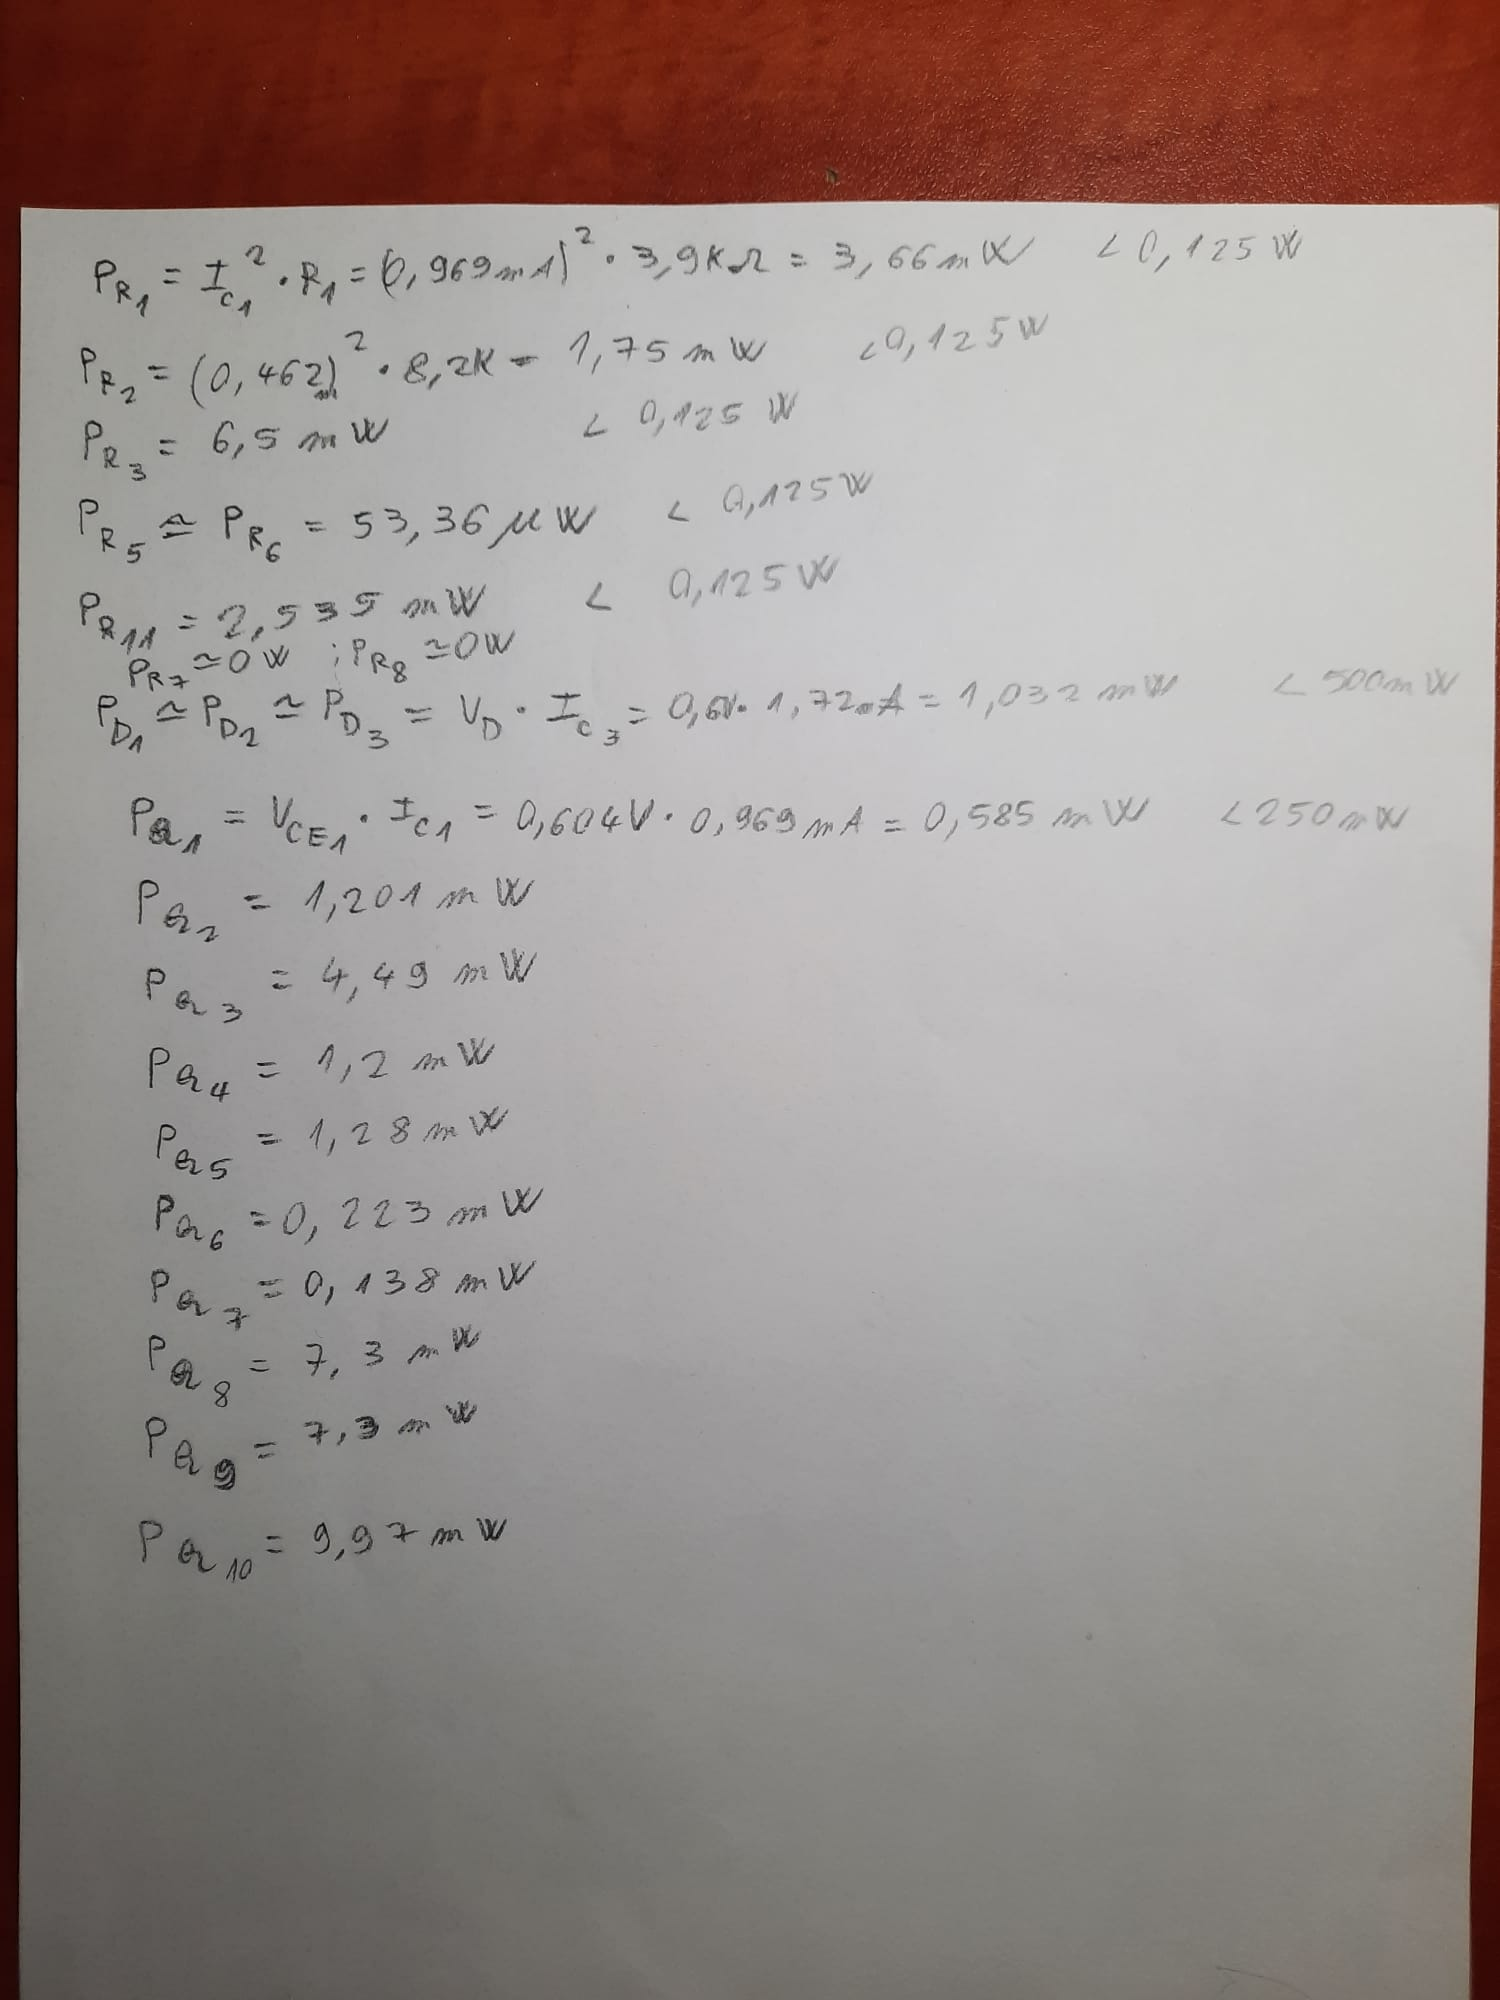 P_R1 = I_C1² · R_1 = (0,969mA)² · 3,9KΩ = 3,66mW < 0,125W
P_R2 = (0,462m)² · 8,2K = 1,75mW < 0,125W
P_R3 = 6,5mW < 0,125W
P_R5 ≃ P_R6 = 53,36μW < 0,125W
P_R11 = 2,535mW < 0,125W
P_R7 ≃ 0W ; P_R8 ≃ 0W
P_D1 ≃ P_D2 ≃ P_D3 = V_D · I_C3 = 0,6V · 1,72mA = 1,032mW < 500mW
P_Q1 = V_CE1 · I_C1 = 0,604V · 0,969mA = 0,585mW < 250mW
P_Q2 = 1,201mW
P_Q3 = 4,49mW
P_Q4 = 1,2mW
P_Q5 = 1,28mW
P_Q6 = 0,223mW
P_Q7 = 0,138mW
P_Q8 = 7,3mW
P_Q9 = 7,3mW
P_Q10 = 9,97mW